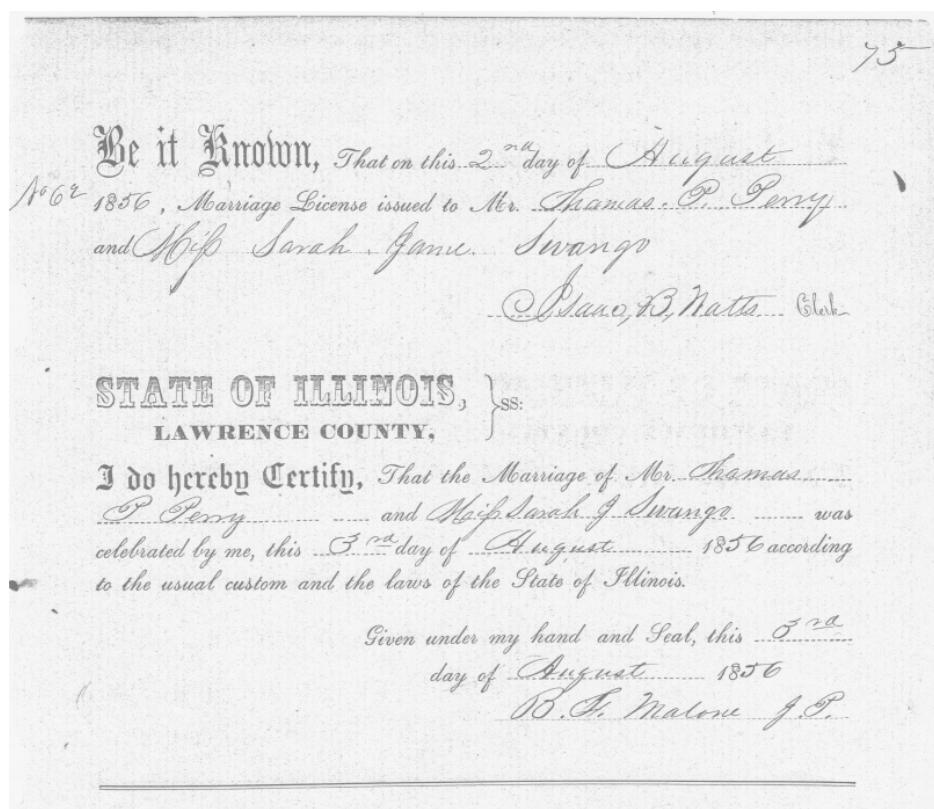 75
Be it Known, That on this 2nd day of August
No 62
1856, Marriage License issued to Mr. Thomas. P. Perry
and Miss Sarah Jane Swango
Isaac, B, Watts Clerk
STATE OF ILLINOIS,
LAWRENCE COUNTY, } SS:
I do hereby Certify, That the Marriage of Mr. Thomas
P Perry and Miss Sarah J Swango was
celebrated by me, this 3rd day of August 1856 according
to the usual custom and the laws of the State of Illinois.
Given under my hand and Seal, this 3rd
day of August 1856
B. F. Malone J. P.